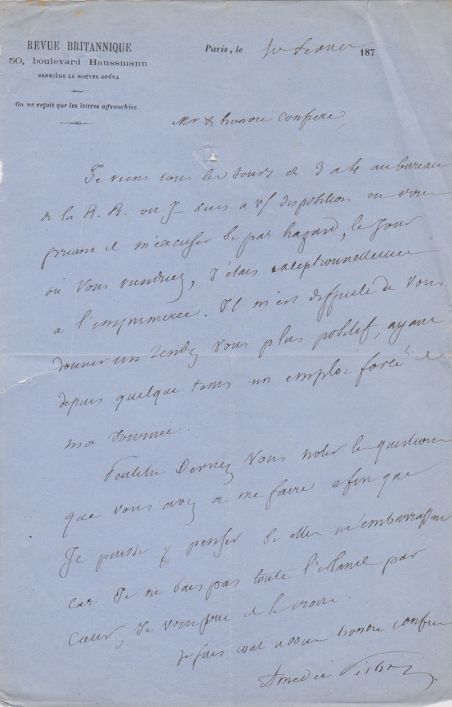 REVUE BRITANNIQUE
50, boulevard Haussmann
DERRIÈRE LE NOUVEL OPÉRA
On ne reçoit que les lettres affranchies.
Paris, le 1er février 187
Mr & honoré confrère,
Je viens tous les jours de 3 a 4h au bureau
de la R. B. où je suis a vs/ disposition en vous
priant de m'excuser si par hazard, le jour
où vous viendriez, j'étais exceptionnellement
a l'imprimerie. Il m'est difficile de vous
donner un rendez vous plus positif, ayant
depuis quelque tems un emploi forcé de
ma journée.
Peut être devriez vous noter les questions
que vous avez a me faire afin que
je puisse y penser si elles m'embarrassent
car je ne sais pas toute l'Irlande par
cœur, je vous prie de le croire.
Je suis tout a vous honoré confrère
Amédée Pichot